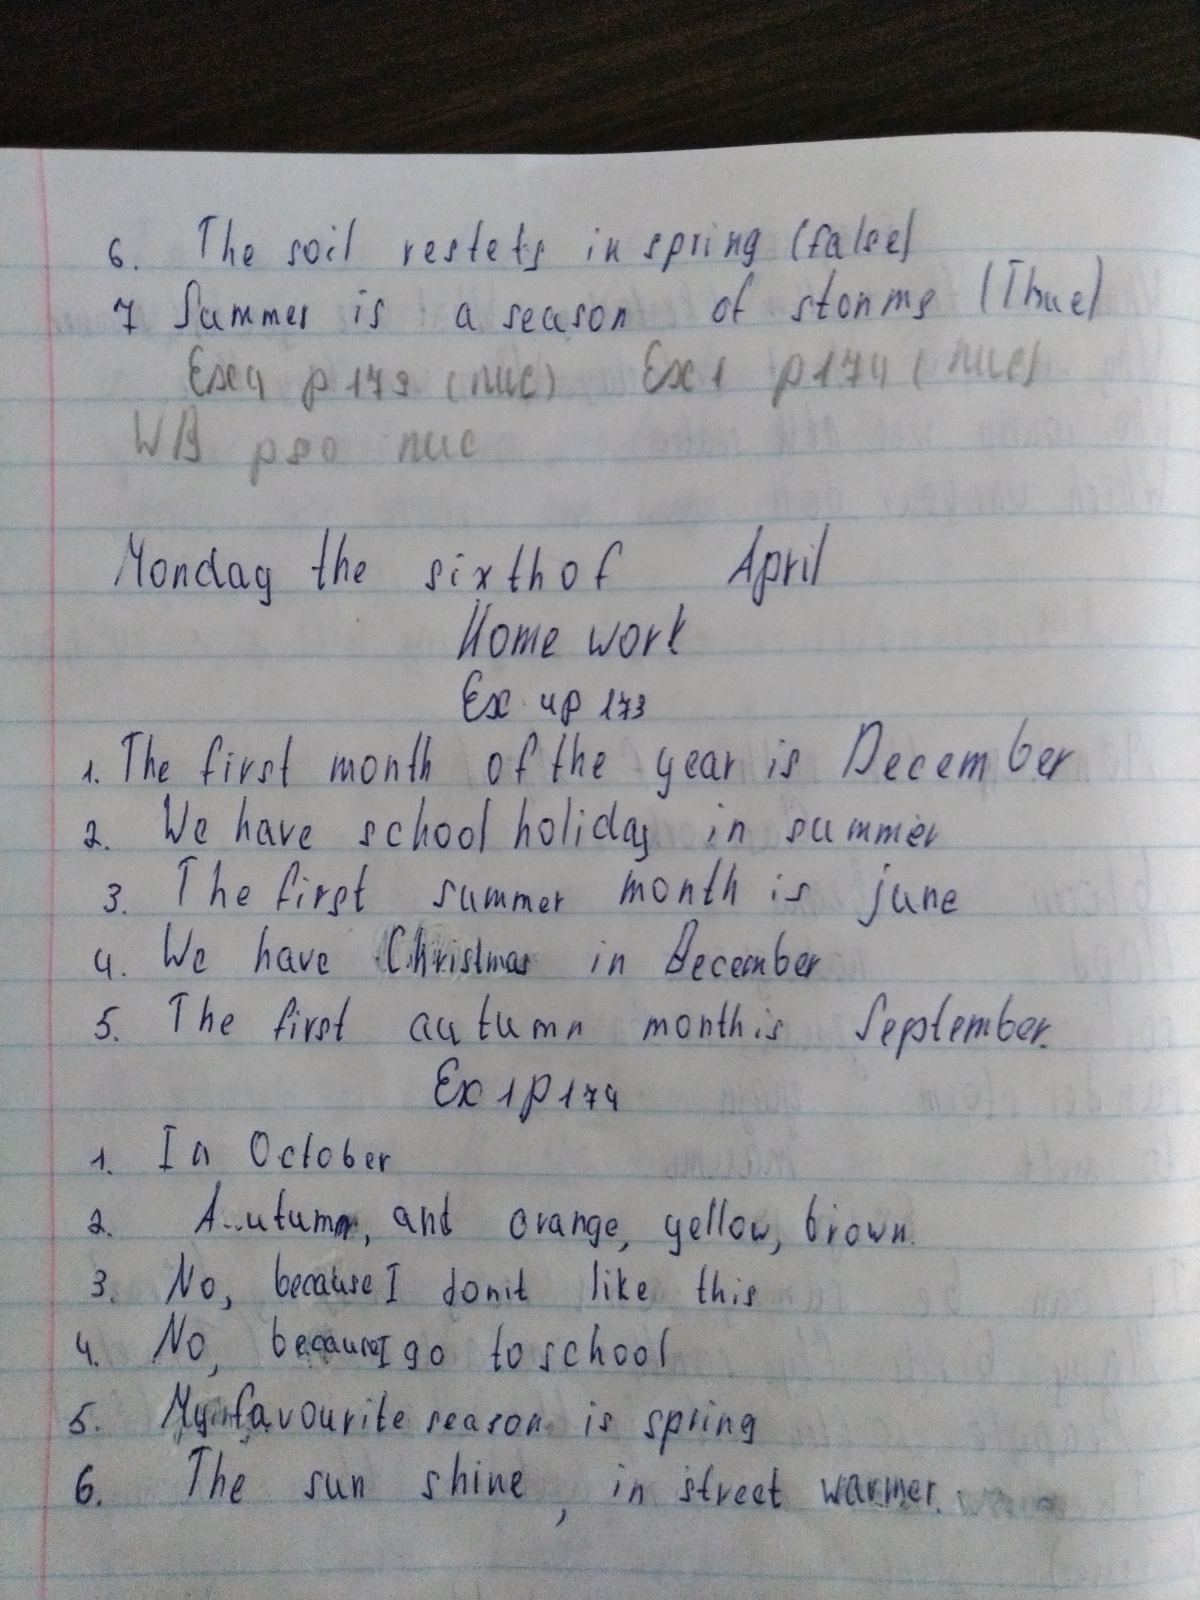 6. The soil restets in spring (false)
7 Summer is a season of stonms (Thue)
Ex 4 p 173 (пис) Ex 1 p 174 (пис)
WB p 80 пис
Monday the sixth of April
Home work
Ex 4p 173
1. The first month of the year is December
2. We have school holiday in summer
3. The first summer month is june
4. We have Christmas in December
5. The first autumn month is September.
Ex 1p 174
1. In October
2. A..utumn, and orange, yellow, brown.
3. No, because I donit like this
4. No, because I go to school
5. My favourite season is spring
6. The sun shine, in street warmer.